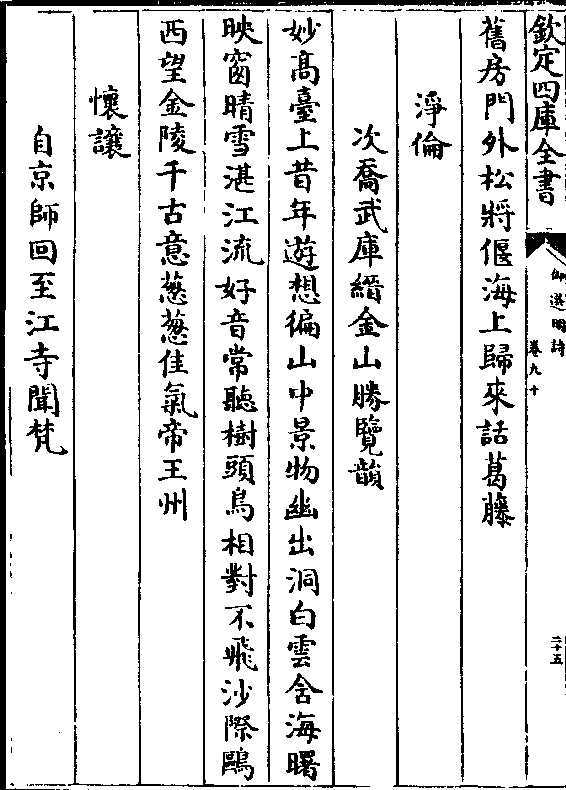 欽定四庫全書
御選明詩
卷九十
二十五
舊房門外松將偃海上歸來話葛藤
淨倫
次喬武庫縉金山勝覽韻
妙高臺上昔年遊想徧山中景物幽出洞白雲含海曙
映窗晴雪湛江流好音常聽樹頭鳥相對不飛沙際鷗
西望金陵千古意葱葱佳氣帝王州
懷讓
自京師回至江寺聞梵